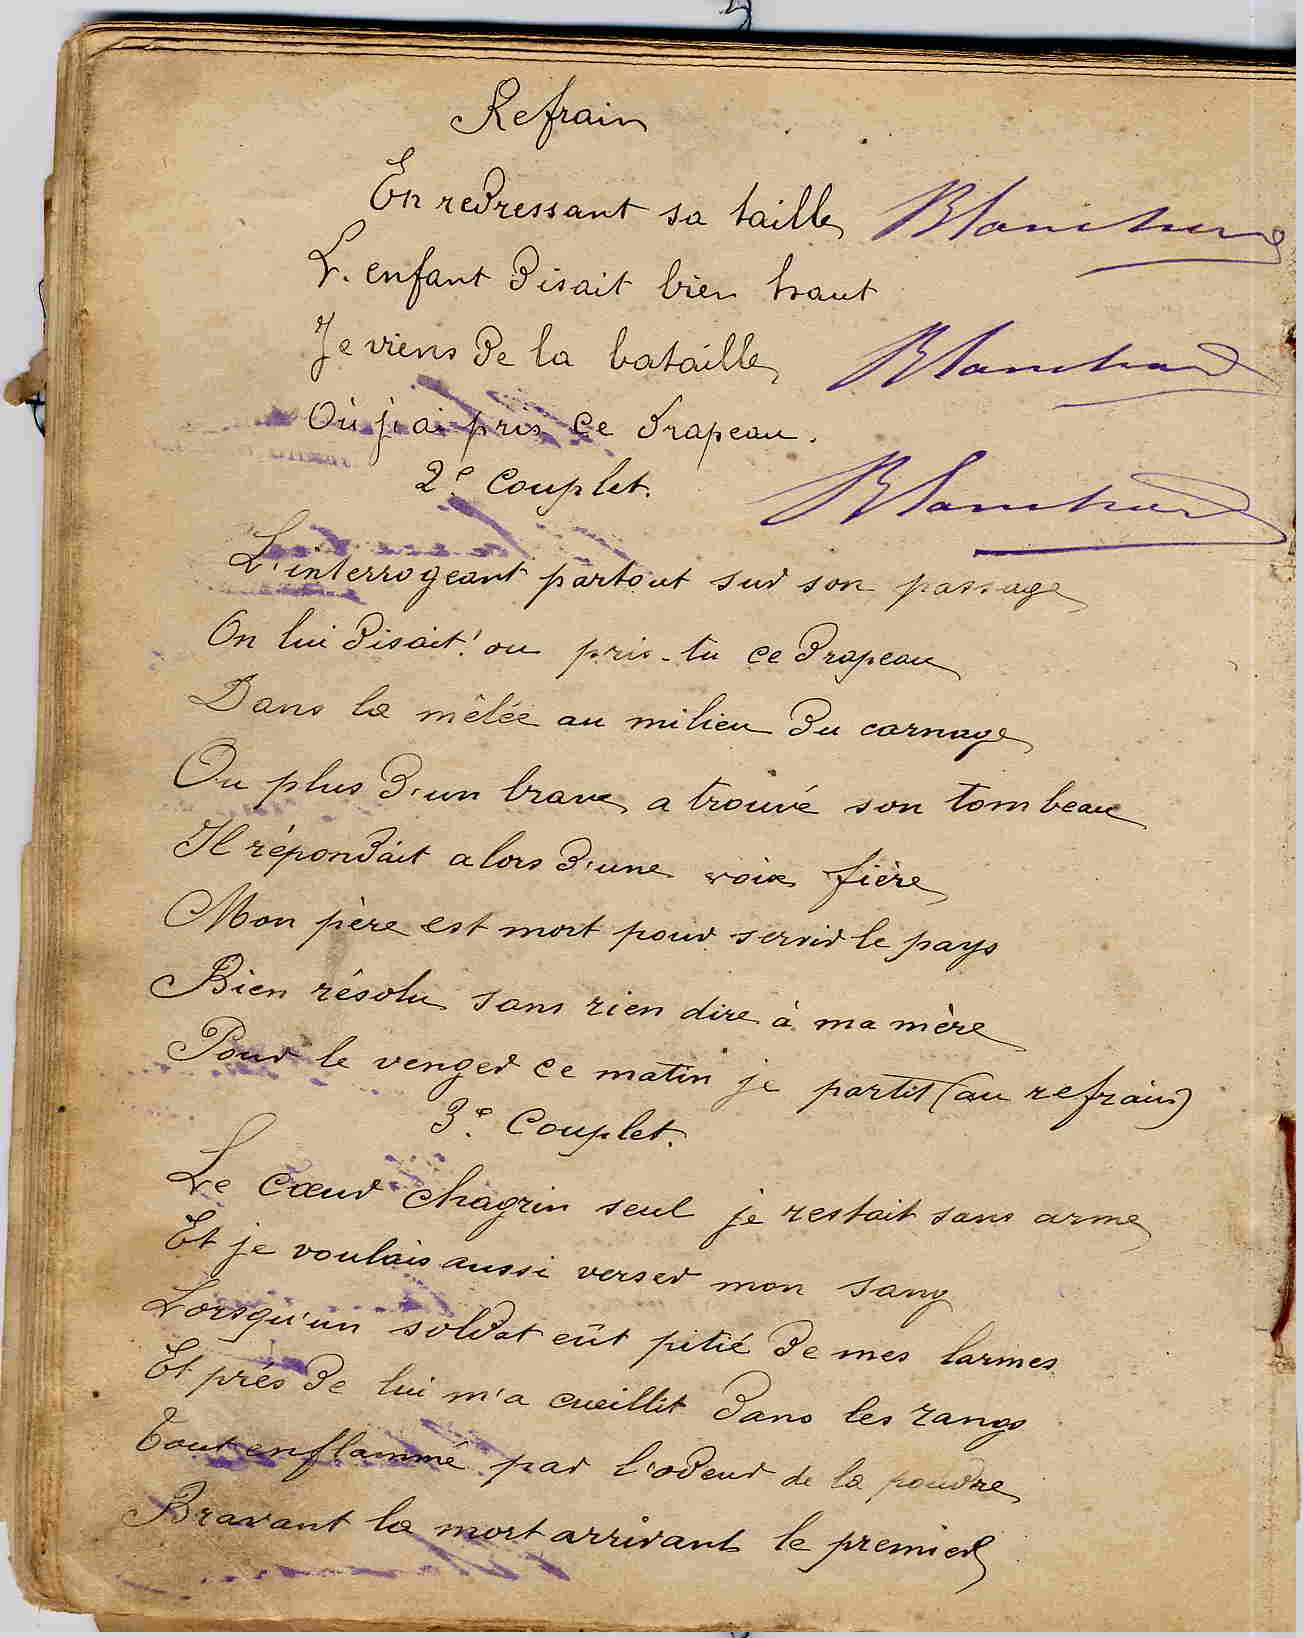 Refrain
En redressant sa taille Blanchard
L'enfant disait bien haut
Je viens de la bataille Blanchard
Où j'ai pris ce drapeau.
2e Couplet. Blanchard
L'interrogeant partout sur son passage
On lui disait! ou pris-tu ce drapeau
Dans la mêlée au milieu du carnage
Ou plus d'un brave a trouvé son tombeau
Il répondait alors d'une voix fière
Mon père est mort pour servir le pays
Bien résolu sans rien dire à ma mère
Pour le venger ce matin je partit (au refrain)
3e Couplet.
Le cœur chagrin seul je restait sans arme
Et je voulais aussi verser mon sang
Lorsqu'un soldat eût pitié de mes larmes
Et prés de lui m'a cueillit dans les rangs
Tout enflammé par l'odeur de la poudre
Bravant la mort arrivant le premier